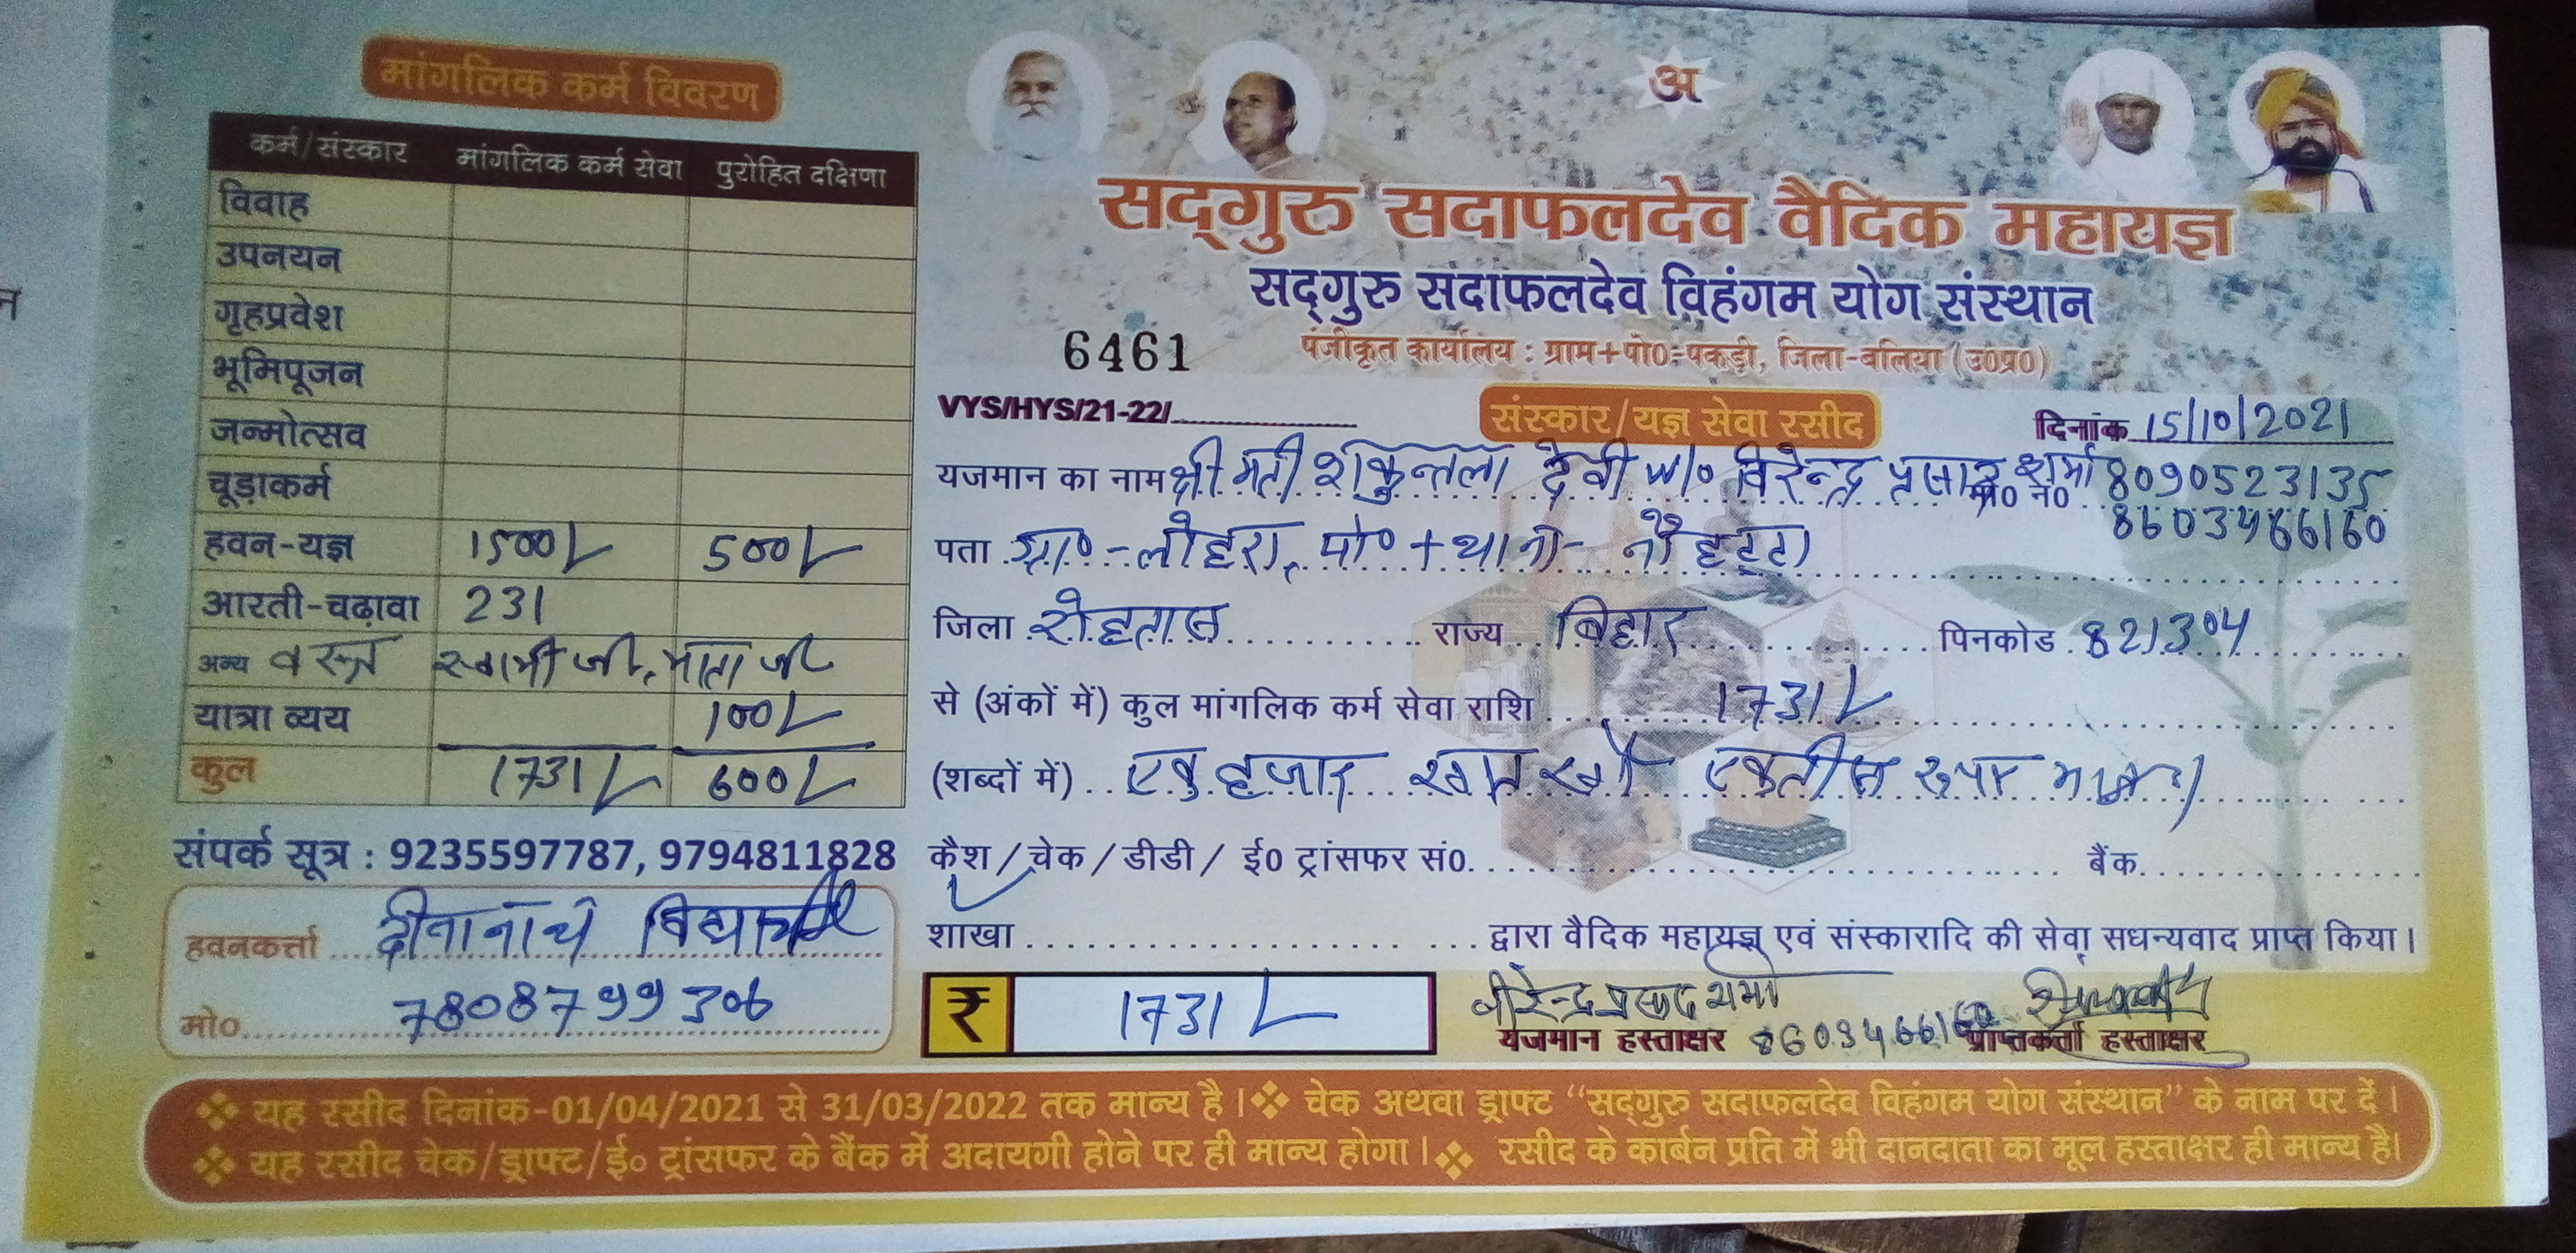 मांगलिक कर्म विवरण
कर्म/संस्कार मांगलिक कर्म सेवा पुरोहित दक्षिणा
विवाह
उपनयन
गृहप्रवेश
भूमिपूजन
जन्मोत्सव
चूड़ाकर्म
हवन-यज्ञ 1500/- 500/-
आरती-चढ़ावा 231
अन्य वस्त्र स्वामी जी, माता जी
यात्रा व्यय 100/-
कुल 1731/- 600/-
संपर्क सूत्र : 9235597787, 9794811828
हवनकर्त्ता दीनानाथ
मो० 7808799306
अ
सद्‌गुरु सदाफलदेव वैदिक महायज्ञ
सद्‌गुरु सदाफलदेव विहंगम योग संस्थान
6461 पंजीकृत कार्यालय : ग्राम+पो०-पकड़ी, जिला-बलिया (उ०प्र०)
VYS/HYS/21-22/ संस्कार/यज्ञ सेवा रसीद दिनांक 15/10/2021
यजमान का नाम श्रीमती शकुन्तला देवी w/o विरेन्द्र प्रसाद शर्मा मो० नं० 8090523135
8603466160
पता ग्रा०-लोहरा, पो०+थाना- नौहट्टा
जिला रोहतास राज्य बिहार पिनकोड 821304
से (अंकों में) कुल मांगलिक कर्म सेवा राशि 1731/-
(शब्दों में) एक हजार सात सौ एकतीस रुपए मात्र
कैश / चेक / डीडी / ई० ट्रांसफर सं० बैंक
शाखा द्वारा वैदिक महायज्ञ एवं संस्कारादि की सेवा सधन्यवाद प्राप्त किया।
₹ 1731/- वीरेन्द्र प्रसाद शर्मा
यजमान हस्ताक्षर 8603466160 प्राप्तकर्त्ता हस्ताक्षर
❖ यह रसीद दिनांक-01/04/2021 से 31/03/2022 तक मान्य है। ❖ चेक अथवा ड्राफ्ट "सद्‌गुरु सदाफलदेव विहंगम योग संस्थान" के नाम पर दें।
❖ यह रसीद चेक/ड्राफ्ट/ई० ट्रांसफर के बैंक में अदायगी होने पर ही मान्य होगा। ❖ रसीद के कार्बन प्रति में भी दानदाता का मूल हस्ताक्षर ही मान्य है।